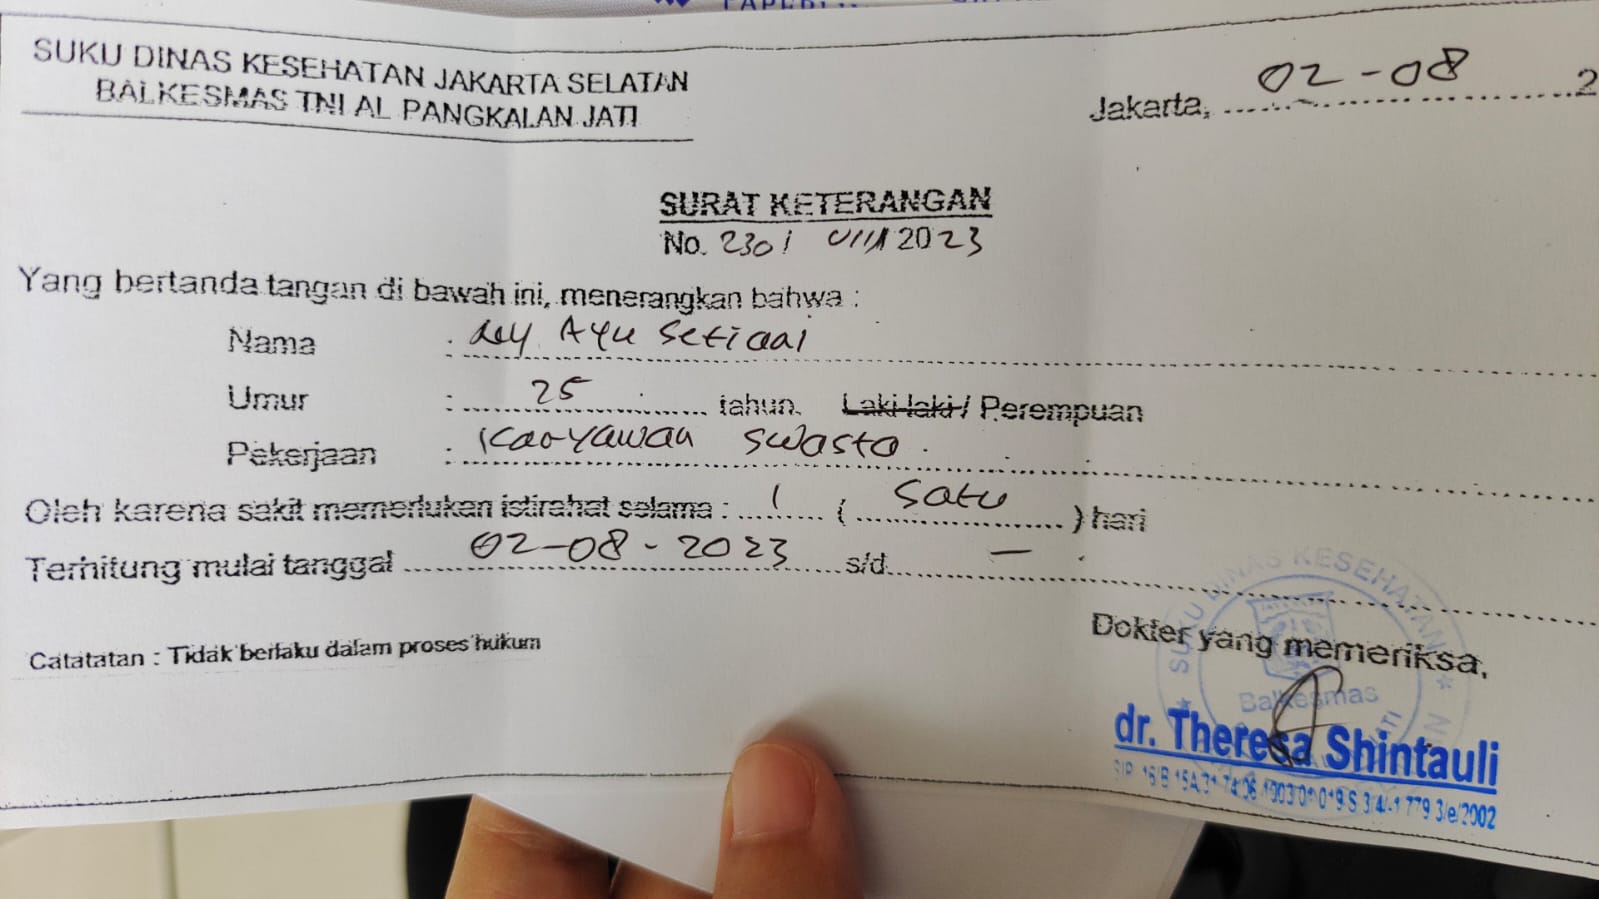 SUKU DINAS KESEHATAN JAKARTA SELATAN
BALKESMAS TNI AL PANGKALAN JATI
Jakarta, 02-08 2
SURAT KETERANGAN
No. 230 / VIII 2023
Yang bertanda tangan di bawah ini, menerangkan bahwa :
Nama : Ayu Setiaai
Umur : 25 tahun. Laki-laki / Perempuan
Pekerjaan : Karyawan swasta
Oleh karena sakit memerlukan istirahat selama : 1 ( Satu ) hari
Terhitung mulai tanggal 02-08-2023 s/d -
Dokter yang memeriksa,
Catatatan : Tidak berlaku dalam proses hukum
SUKU DINAS KESEHATAN
Balkesmas
dr. Theresa Shintauli